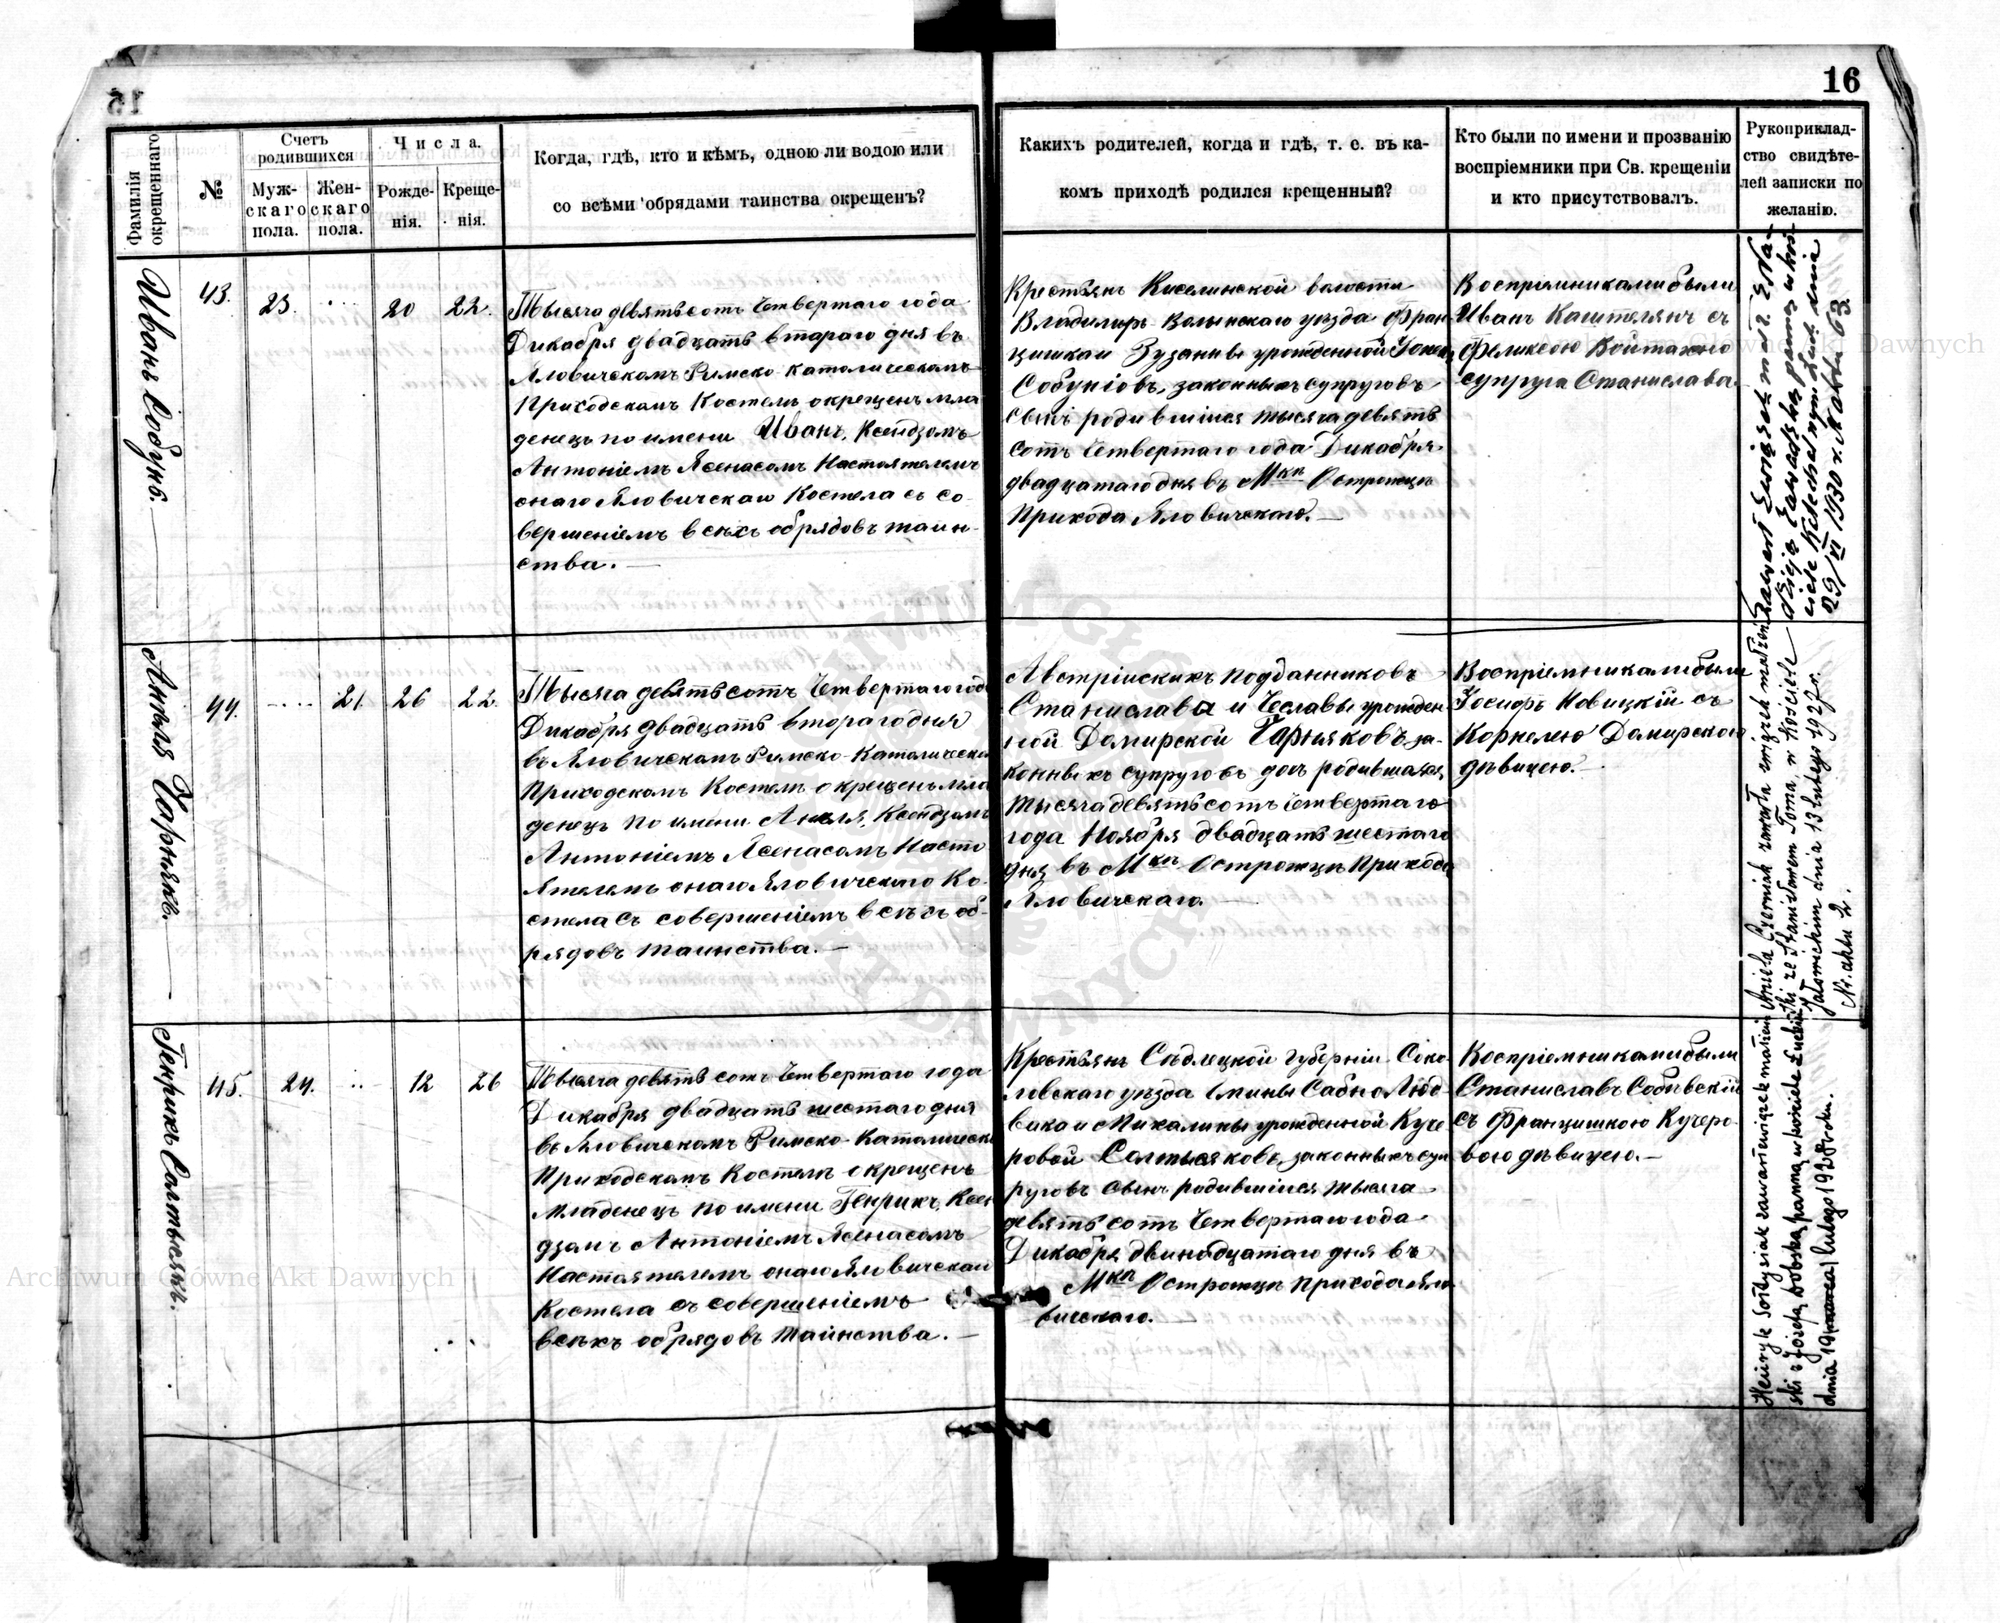 15
16
Фамилія окрещеннаго.
№
Счетъ родившихся
Мужскаго пола.
Женскаго пола.
Числа.
Рожденія.
Крещенія.
Когда, гдѣ, кто и кѣмъ, одною ли водою или
со всѣми обрядами таинства окрещенъ?
Какихъ родителей, когда и гдѣ, т. е. въ ка-
комъ приходѣ родился крещенный?
Кто были по имени и прозванію
воспріемники при Св. крещеніи
и кто присутствовалъ.
Рукоприклад-
ство свидѣте-
лей записки по
желанію.
Иванъ Собунь.
43.
23.
20
22.
Тысяча девятьсотъ Четвертаго года
Декабря двадцать втораго дня въ
Яловичскомъ Римско-католическомъ
Приходскомъ Костелѣ окрещенъ мла
денецъ по имени Иванъ, Ксендзомъ
Антоніемъ Ясенасомъ Настоятелемъ
онаго Яловичскаго Костела съ со-
вершеніемъ всѣхъ обрядовъ таин-
ства.
Крестьянъ Киселинской волости
Владиміръ-Волынскаго уѣзда Фран
цишка и Зузанны урожденной
Собуніовъ, законныхъ супруговъ
сынъ родившійся тысяча девять
сотъ Четвертаго года Декабря
двадцатаго дня въ Мкп Острожцѣ
Прихода Яловичскаго.
Воспріемниками были
Иванъ Каштелянъ съ
Феликсою
супруга Станислава.
Zawarł związek małż. z Na-
29/VI 1930 r. N. aktu 63.
Анеля Чарнякъ.
44.
21.
26
22.
Тысяча девятьсотъ Четвертаго года
Декабря двадцать втораго дня
въ Яловичскомъ Римско-Католическомъ
Приходскомъ Костелѣ окрещенъ мла
денецъ по имени Анеля, Ксендзомъ
Антоніемъ Ясенасомъ Насто
ятелемъ онаго Яловичскаго Ко-
стела съ совершеніемъ всѣхъ об-
рядовъ таинства.
Австрійскихъ подданниковъ
Станислава и Чеславы урожден-
ной Домирской Чарняковъ за-
конныхъ супруговъ дочь родившаяся
тысяча девятьсотъ четвертаго
года Ноября двадцать шестаго
дня въ Мкп Острожцѣ Прихода
Яловичскаго.
Воспріемниками были
Іосифъ Новицкій съ
Корнелею Домирскою
дѣвицею.
Aniela Czerniak zawarła związek małżeń
ski ze Stanisławem Toma, w Kościele
Jałowickim dnia 13 lutego 1927 r.
Nr. aktu 2.
Генрикъ Солтысякъ.
45.
24.
12
26
Тысяча девятьсотъ Четвертаго года
Декабря двадцать шестаго дня
въ Яловичскомъ Римско-Католическомъ
Приходскомъ Костелѣ окрещенъ
младенецъ по имени Генрикъ, Ксен
дзомъ Антоніемъ Ясенасомъ
Настоятелемъ онаго Яловичскаго
Костела съ совершеніемъ
всѣхъ обрядовъ таинства.
Крестьянъ Сѣдлецкой губерніи Соко
ловскаго уѣзда Гмины Сабно Людо
вика и Михалины урожденной Куче
ровой Солтысяковъ, законныхъ суп
руговъ сынъ родившійся тысяча
девятьсотъ Четвертаго года
Декабря двѣнадцатаго дня въ
Мкп Острожцѣ Прихода Яло
вичскаго.
Воспріемниками были
Станиславъ Собѣвскій
съ Францишкою Кучеро-
вою дѣвицею.
Henryk Sołtysiak zawarł związek małżeń
ski z Józefą panną w kościele
dnia 19 lutego 1928 roku.
Archiwum Główne Akt Dawnych
Archiwum Główne Akt Dawnych